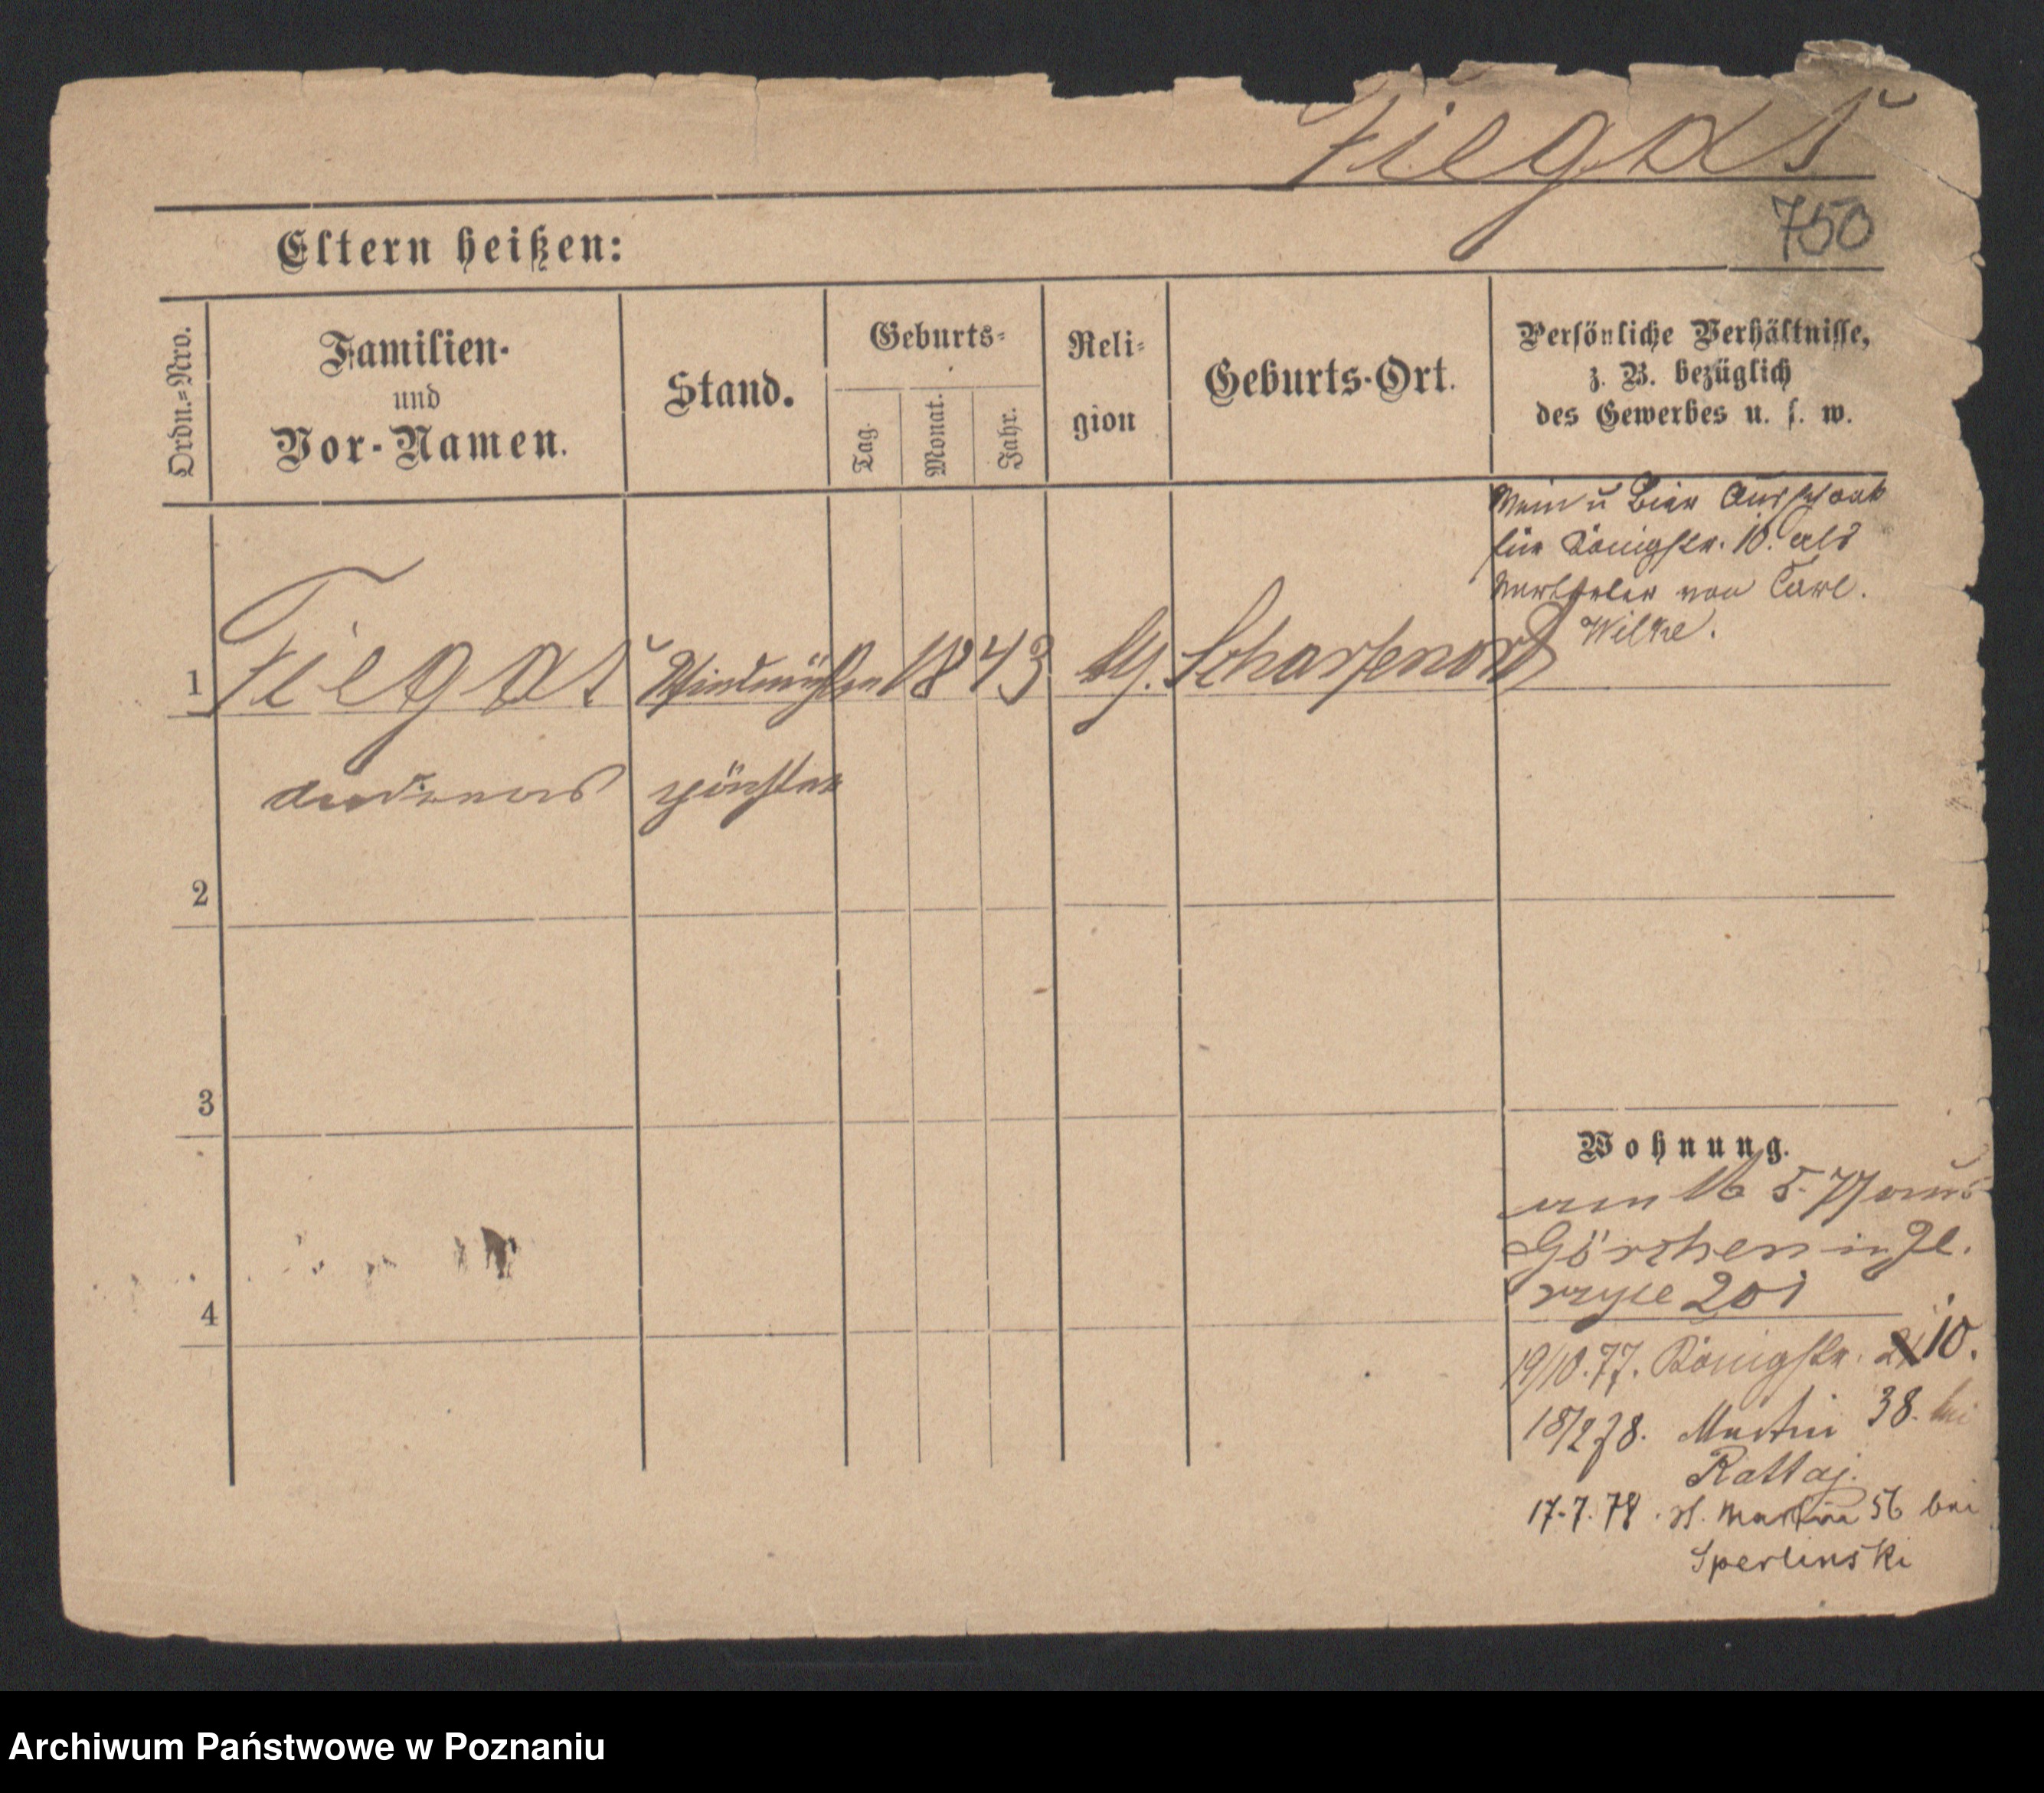 Fiegas
750
Eltern heißen:
Ordn.=Nro.
Familien-
und
Vor-Namen.
Stand.
Geburts-
Tag.
Monat.
Jahr.
Reli-
gion
Geburts-Ort.
Persönliche Verhältnisse,
z. B. bezüglich
des Gewerbes u. s. w.
Wein u Bier Ausschank
für Königstr. 10. als
Vertreter von Carl
Wilke.
1 Fiegas Windmühlen 1843 Scharfenort
pächter
2
3
4
Wohnung.
am 16 5. 77 aus
Görchen
201
19/10.77. Königstr. 10.
18/2 78. Martin 38. bei
Rattaj.
17.7.78. St. Martin 56 bei
Sperlinski
Archiwum Państwowe w Poznaniu